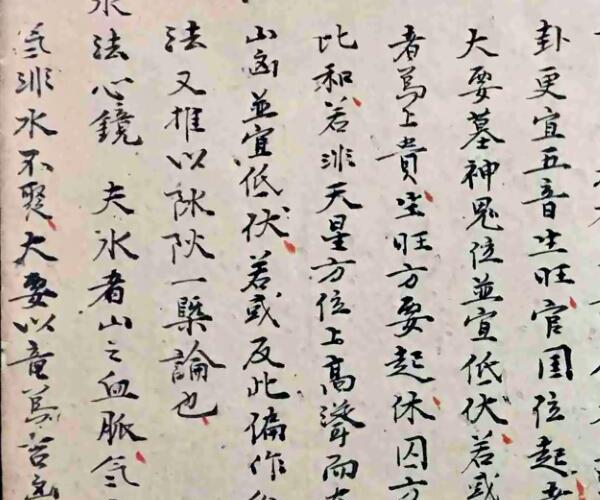 卦更宜五音生旺官国位起
大要墓神鬼位並宣低伏若或
者為上貴生旺方要起休囚方
比和若非天星方位上高聳而
山岗並宜低伏若或反此偏作
法又推以陈欤一槩論也
水法心鏡 夫水者山之血脈气
氣非水不聚大要以竜為